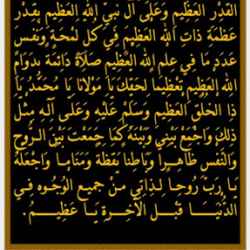 القَدْرِ العَظِيمِ وَعَلَى آلِ نَبِيِّ اللهِ العَظِيمِ بِقَدْرِ
عَظَمَةِ ذَاتِ اللهِ العَظِيمِ فِي كُلِّ لَمْحَةٍ وَنَفَسٍ
عَدَدَ مَا فِي عِلْمِ اللهِ العَظِيمِ صَلَاةً دَائِمَةً بِدَوَامِ
اللهِ العَظِيمِ تَعْظِيمًا لِحَقِّكَ يَا مَوْلَانَا يَا مُحَمَّدُ يَا
ذَا الخُلُقِ العَظِيمِ وَسَلِّمْ عَلَيْهِ وَعَلَى آلِهِ مِثْلَ
ذَلِكَ وَاجْمَعْ بَيْنِي وَبَيْنَهُ كَمَا جَمَعْتَ بَيْنَ الرُّوحِ
وَالنَّفْسِ ظَاهِرًا وَبَاطِنًا يَقَظَةً وَمَنَامًا وَاجْعَلْهُ
يَا رَبِّ رُوحًا لِذَاتِي مِنْ جَمِيعِ الوُجُوهِ فِي
الدُّنْيَا قَبْلَ الآخِرَةِ يَا عَظِيمُ.